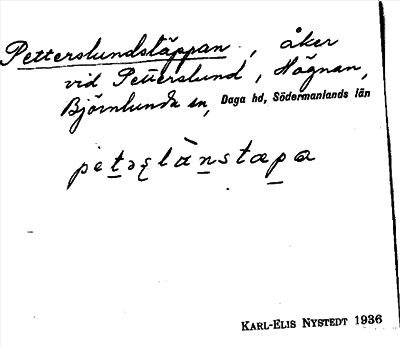 Petterslundstäppan, åker
vid Petterslund, Högnan,
Björnlunda sn, Daga hd, Södermanlands län
KARL-ELIS NYSTEDT 1936